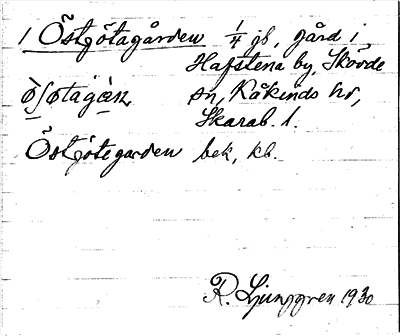 1 Östgötagården 1/4 gd, gård i
Hafstena by, Skövde
sn, Kåkinds hd,
Skarab. l.
Östgötegarden bek, kb.
R. Ljunggren 1930